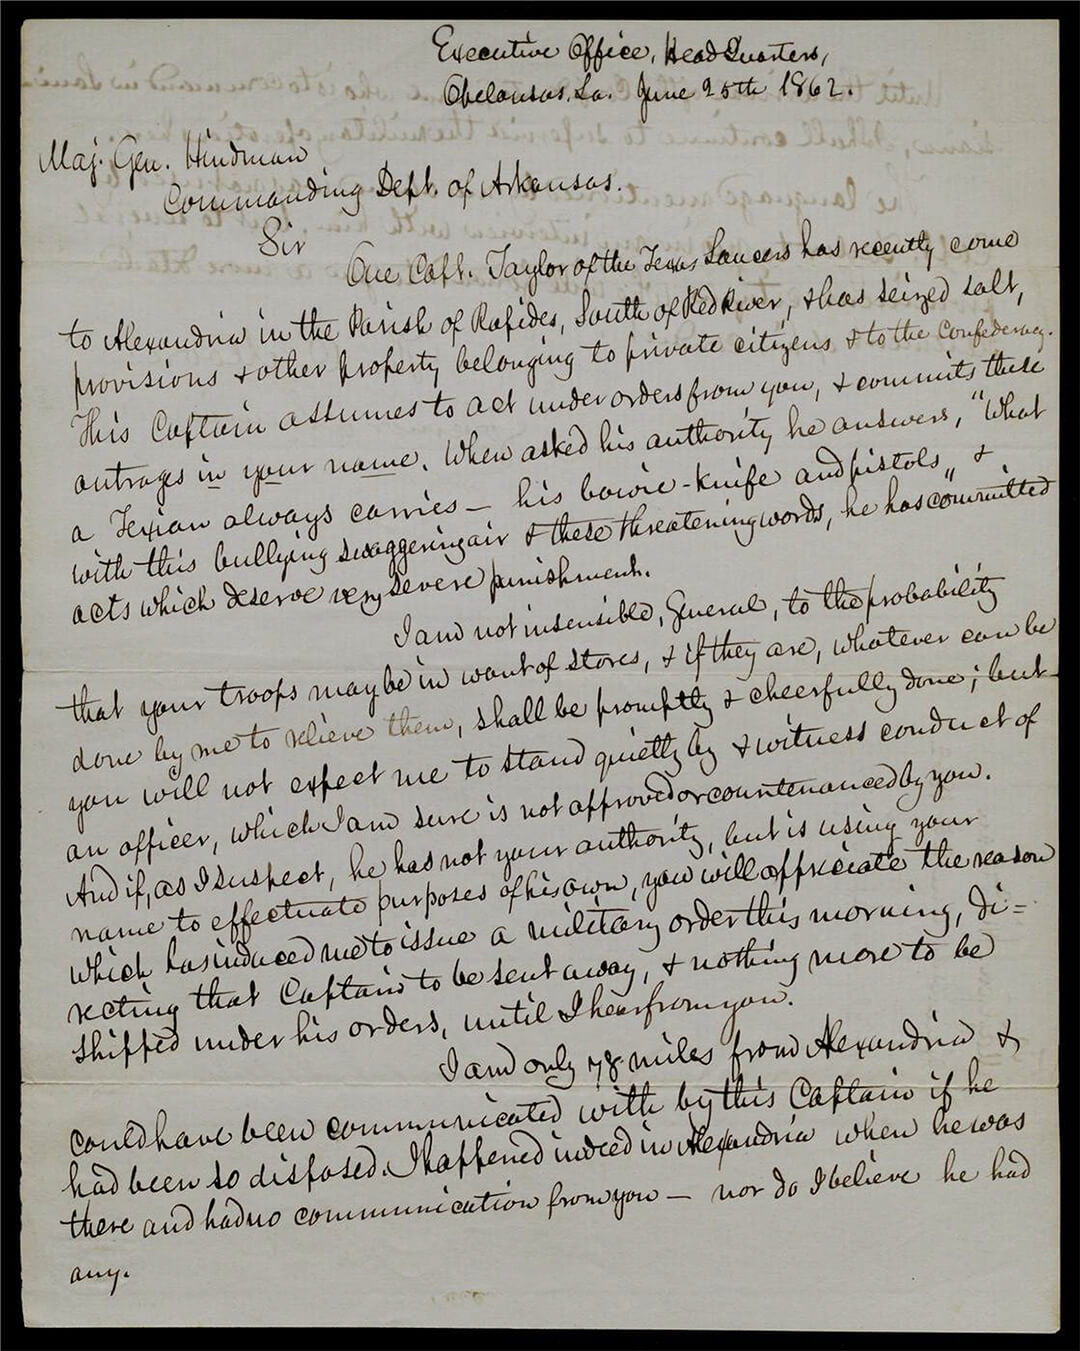 Executive Office, Head Quarters,
Opelousas, La. June 25th 1862.
Maj. Gen. Hindman
Commanding Dept. of Arkansas.
Sir
One Capt. Taylor of the Texas Lancers has recently come
to Alexandria in the Parish of Rapides, South of Red River, & has seized salt,
provisions & other property belonging to private citizens & to the Confederacy.
This Captain assumes to act under orders from you, & commits these
outrages in your name. When asked his authority he answers, "What
a Texian always carries — his bowie-knife and pistols" &
with this bullying swaggering air & these threatening words, he has committed
acts which deserve very severe punishment.
I am not insensible, General, to the probability
that your troops may be in want of stores, & if they are, whatever can be
done by me to relieve them, shall be promptly & cheerfully done; but
you will not expect me to stand quietly by & witness conduct of
an officer, which I am sure is not approved or countenanced by you.
And if, as I suspect, he has not your authority, but is using your
name to effectuate purposes of his own, you will appreciate the reason
which has induced me to issue a military order this morning, di=
recting that Captain to be sent away, & nothing more to be
shipped under his orders, until I hear from you.
I am only 78 miles from Alexandria &
could have been communicated with by this Captain if he
had been so disposed. I happened indeed in Alexandria when he was
there and had no communication from you — nor do I believe he had
any.